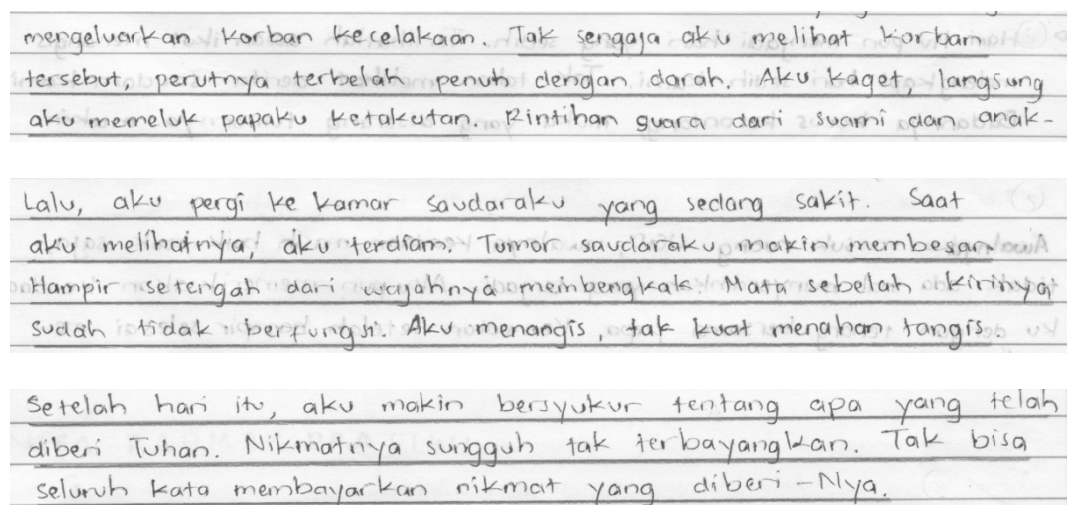 mengeluarkan korban kecelakaan. Tak sengaja aku melihat korban
tersebut, perutnya terbelah penuh dengan darah. Aku kaget, langsung
aku memeluk papaku ketakutan. Rintihan suara dari suami dan anak-
Lalu, aku pergi ke kamar saudaraku yang sedang sakit. Saat
aku melihatnya, aku terdiam. Tumor saudaraku makin membesar.
Hampir setengah dari wajahnya membengkak. Mata sebelah kirinya
sudah tidak berfungsi. Aku menangis, tak kuat menahan tangis.
Setelah hari itu, aku makin bersyukur tentang apa yang telah
diberi Tuhan. Nikmatnya sungguh tak terbayangkan. Tak bisa
seluruh kata membayarkan nikmat yang diberi-Nya.